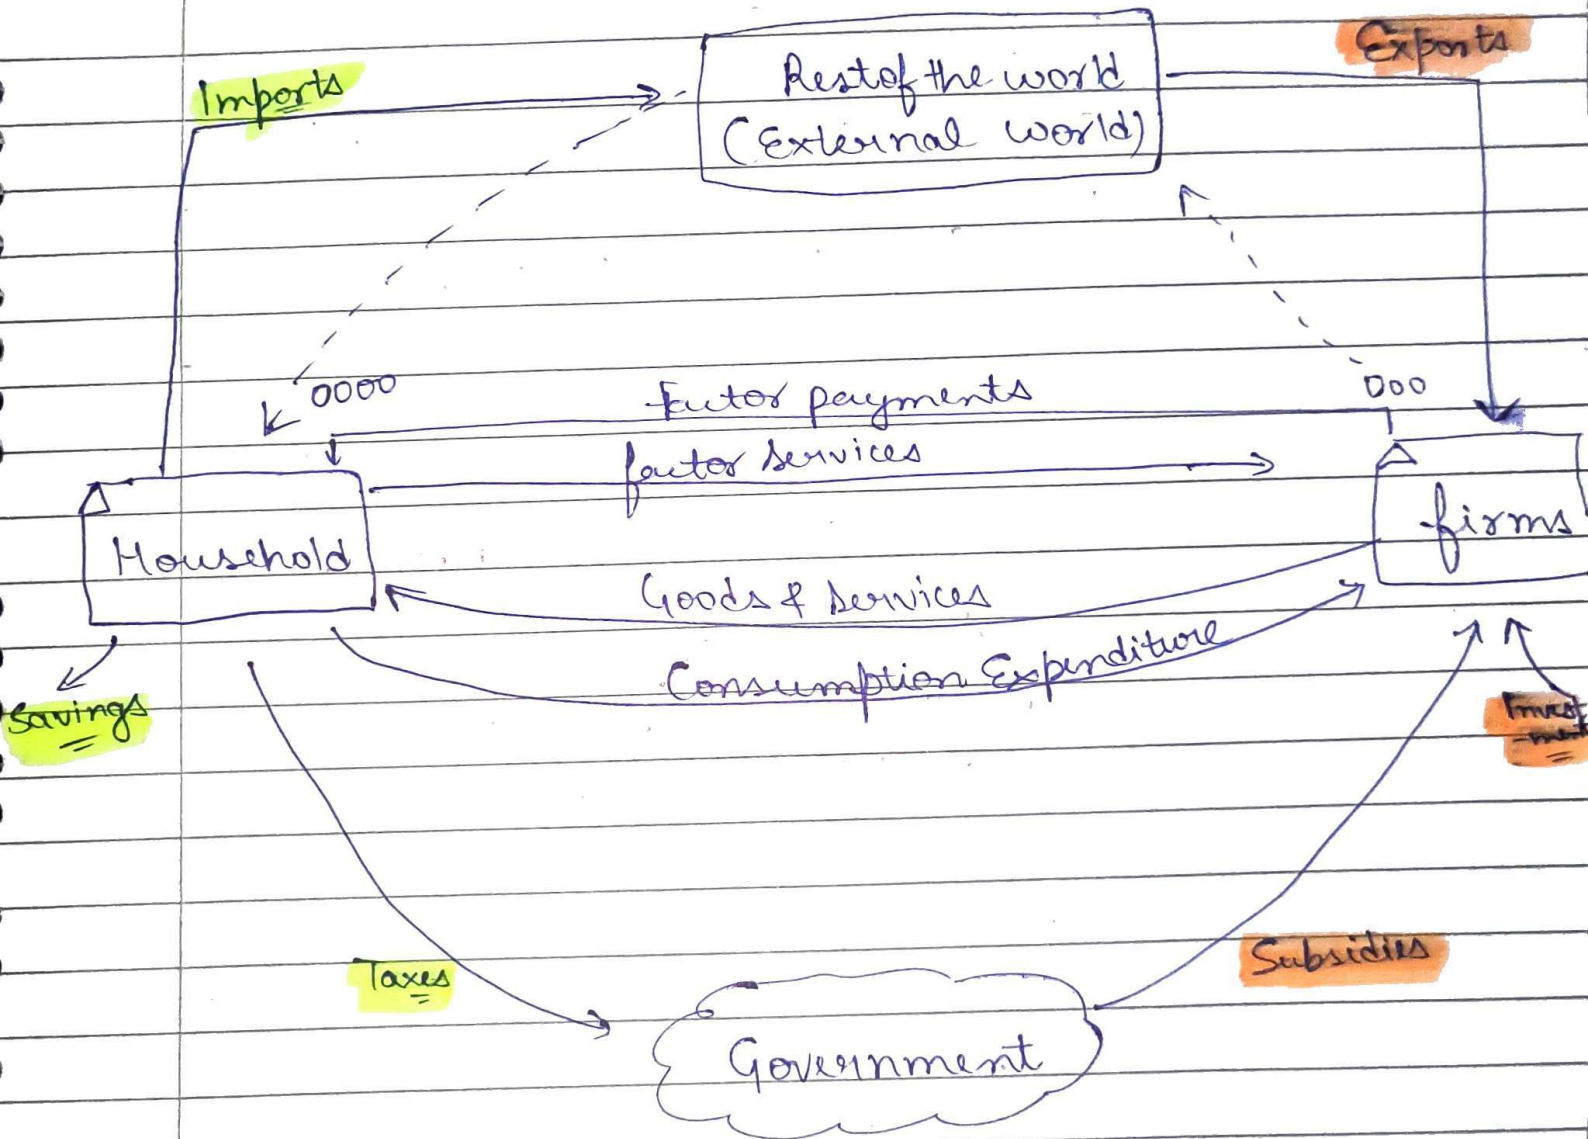 Exports
Imports
Rest of the world
(External world)
0000
000
Factor payments
factor services
Household
firms
Goods & services
Consumption Expenditure
Savings
Invest
-ment
Taxes
Subsidies
Government